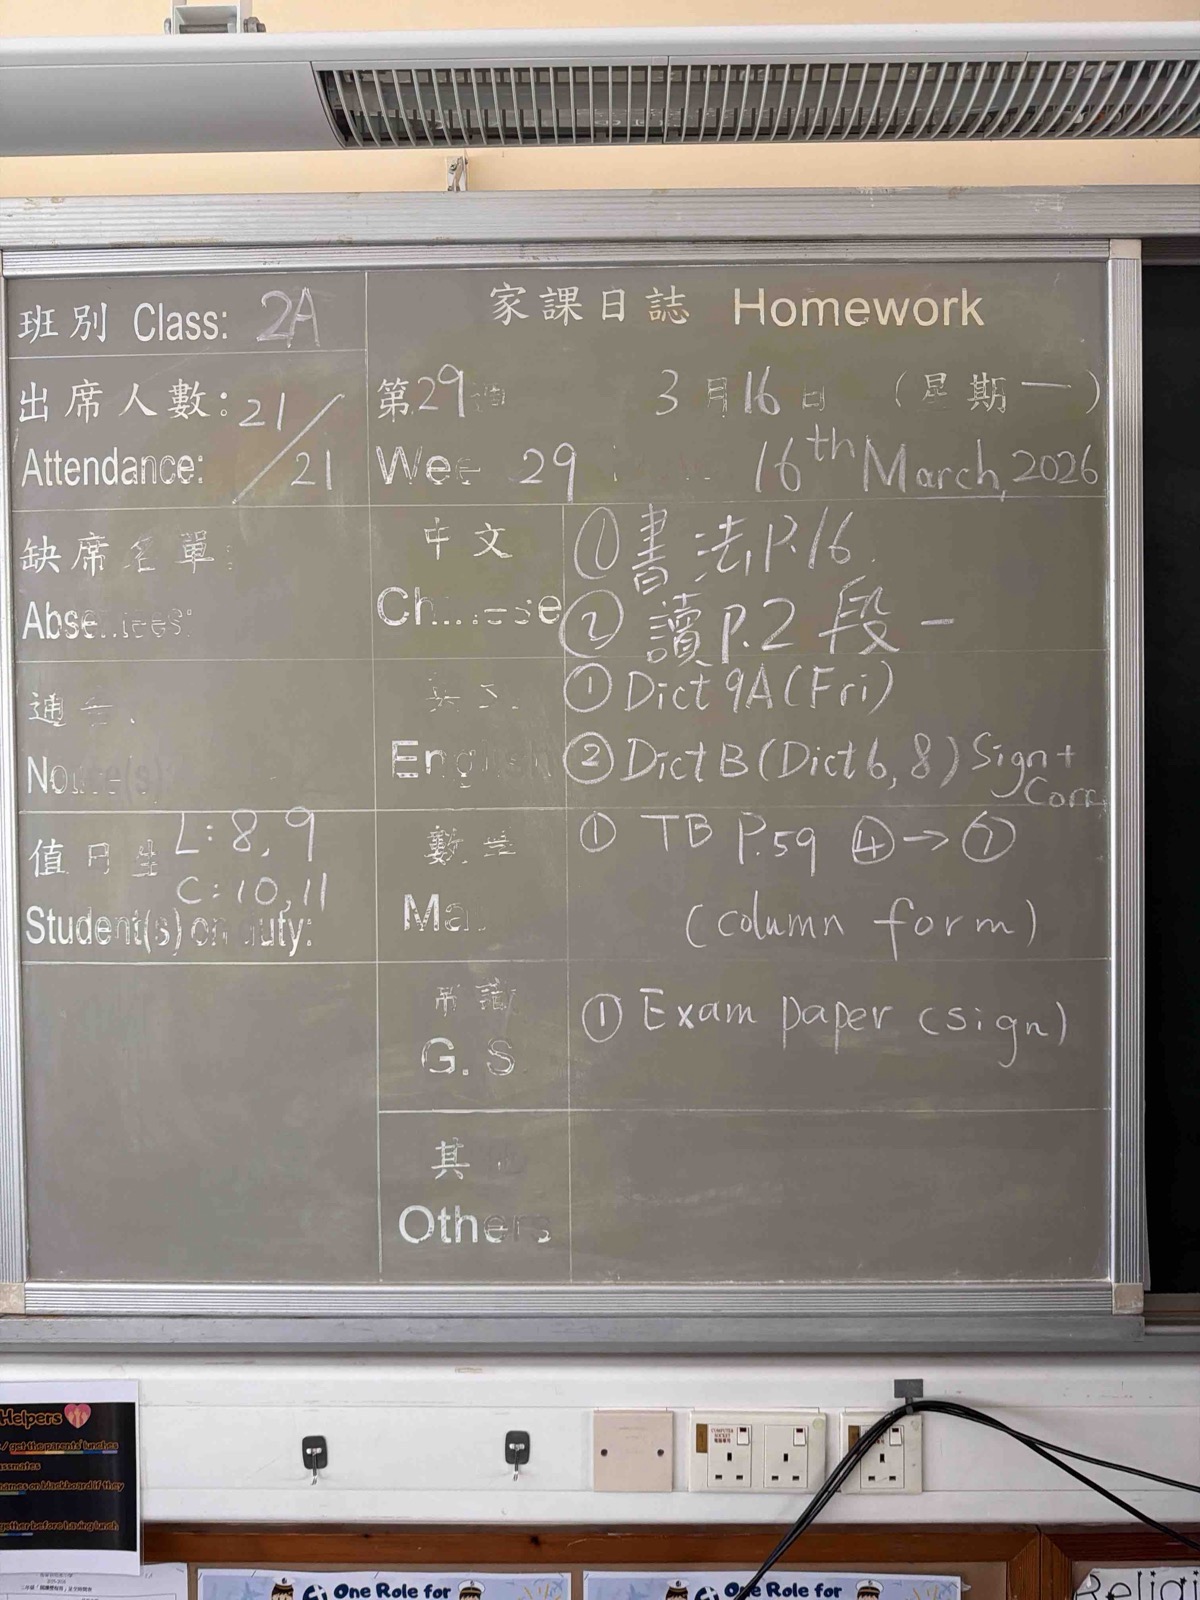 班別 Class: 2A
家課日誌 Homework
出席人數: 21/21
Attendance:
第29週 3月16日 (星期一)
Wee 29 16th March, 2026
缺席名單:
Absentees:
中文
Chinese
① 書法P.16
② 讀P.2 段一
通告
Notice(s)
English
① Dict 9A (Fri)
② Dict B (Dict 6, 8) Sign + Corr
值日生 L: 8, 9
C: 10, 11
Student(s) on duty:
數學
Ma
① TB P.59 ④→⑦
(column form)
常識
G. S
① Exam paper (sign)
其他
Others
Helpers
/ get the parents' lunches
assmates
names on blackboard if they
gether before having lunch
COMPUTER SOCKET
One Role for
One Role for
Religi